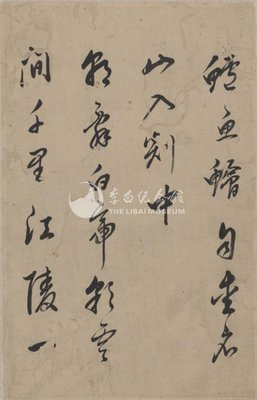 鱸魚鱠自愛名
山入剡中
朝辭白帝彩雲
間千里江陵一
李白紀念館
THE LIBAI MUSEUM